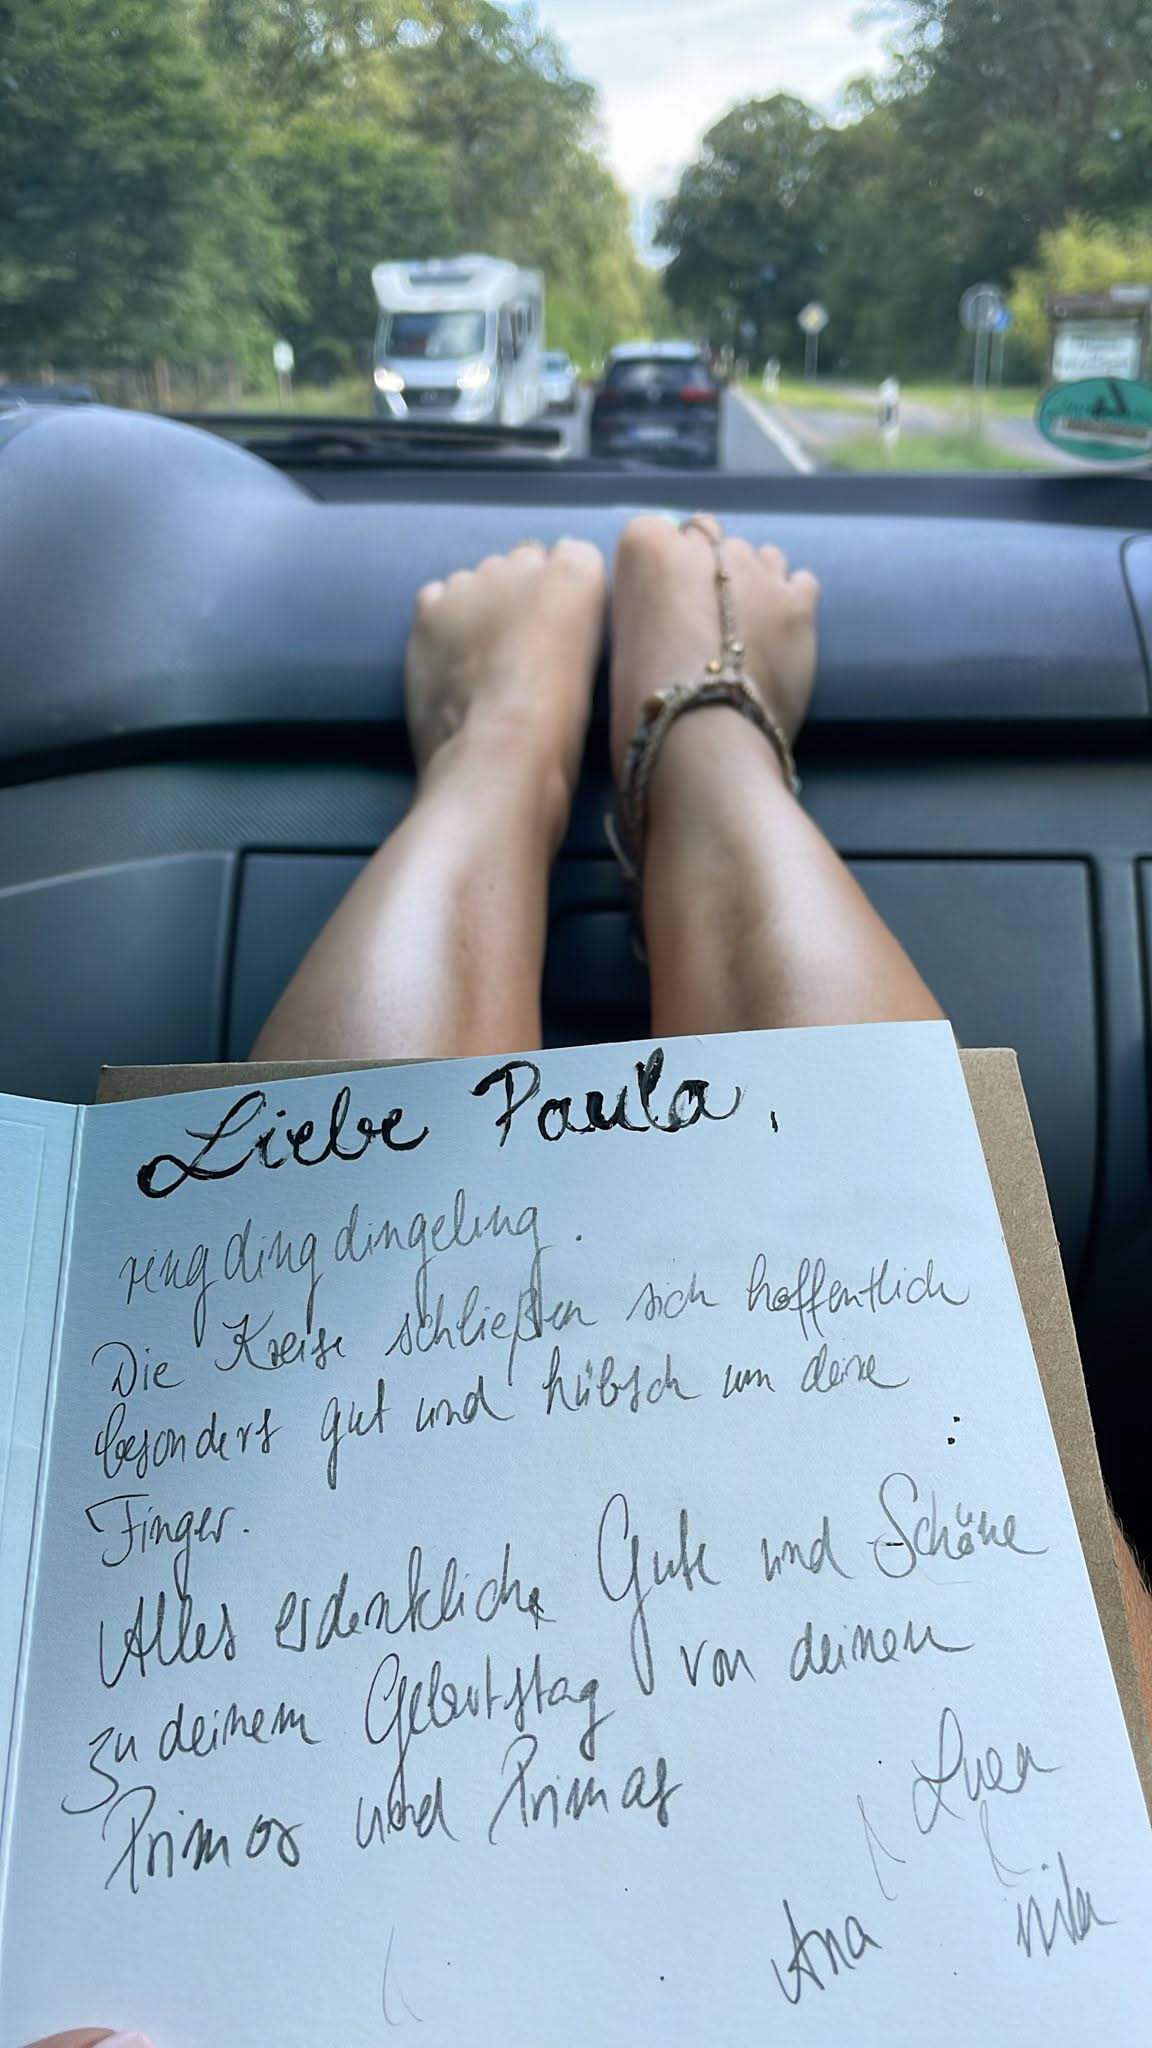 Liebe Paula,
ring ding dingeling.
Die Kreise schließen sich hoffentlich
besonders gut und hübsch um deine
Finger.
Alles erdenkliche Gute und Schöne
zu deinem Geburtstag von deinen
Primos und Primas
Luca
Ana